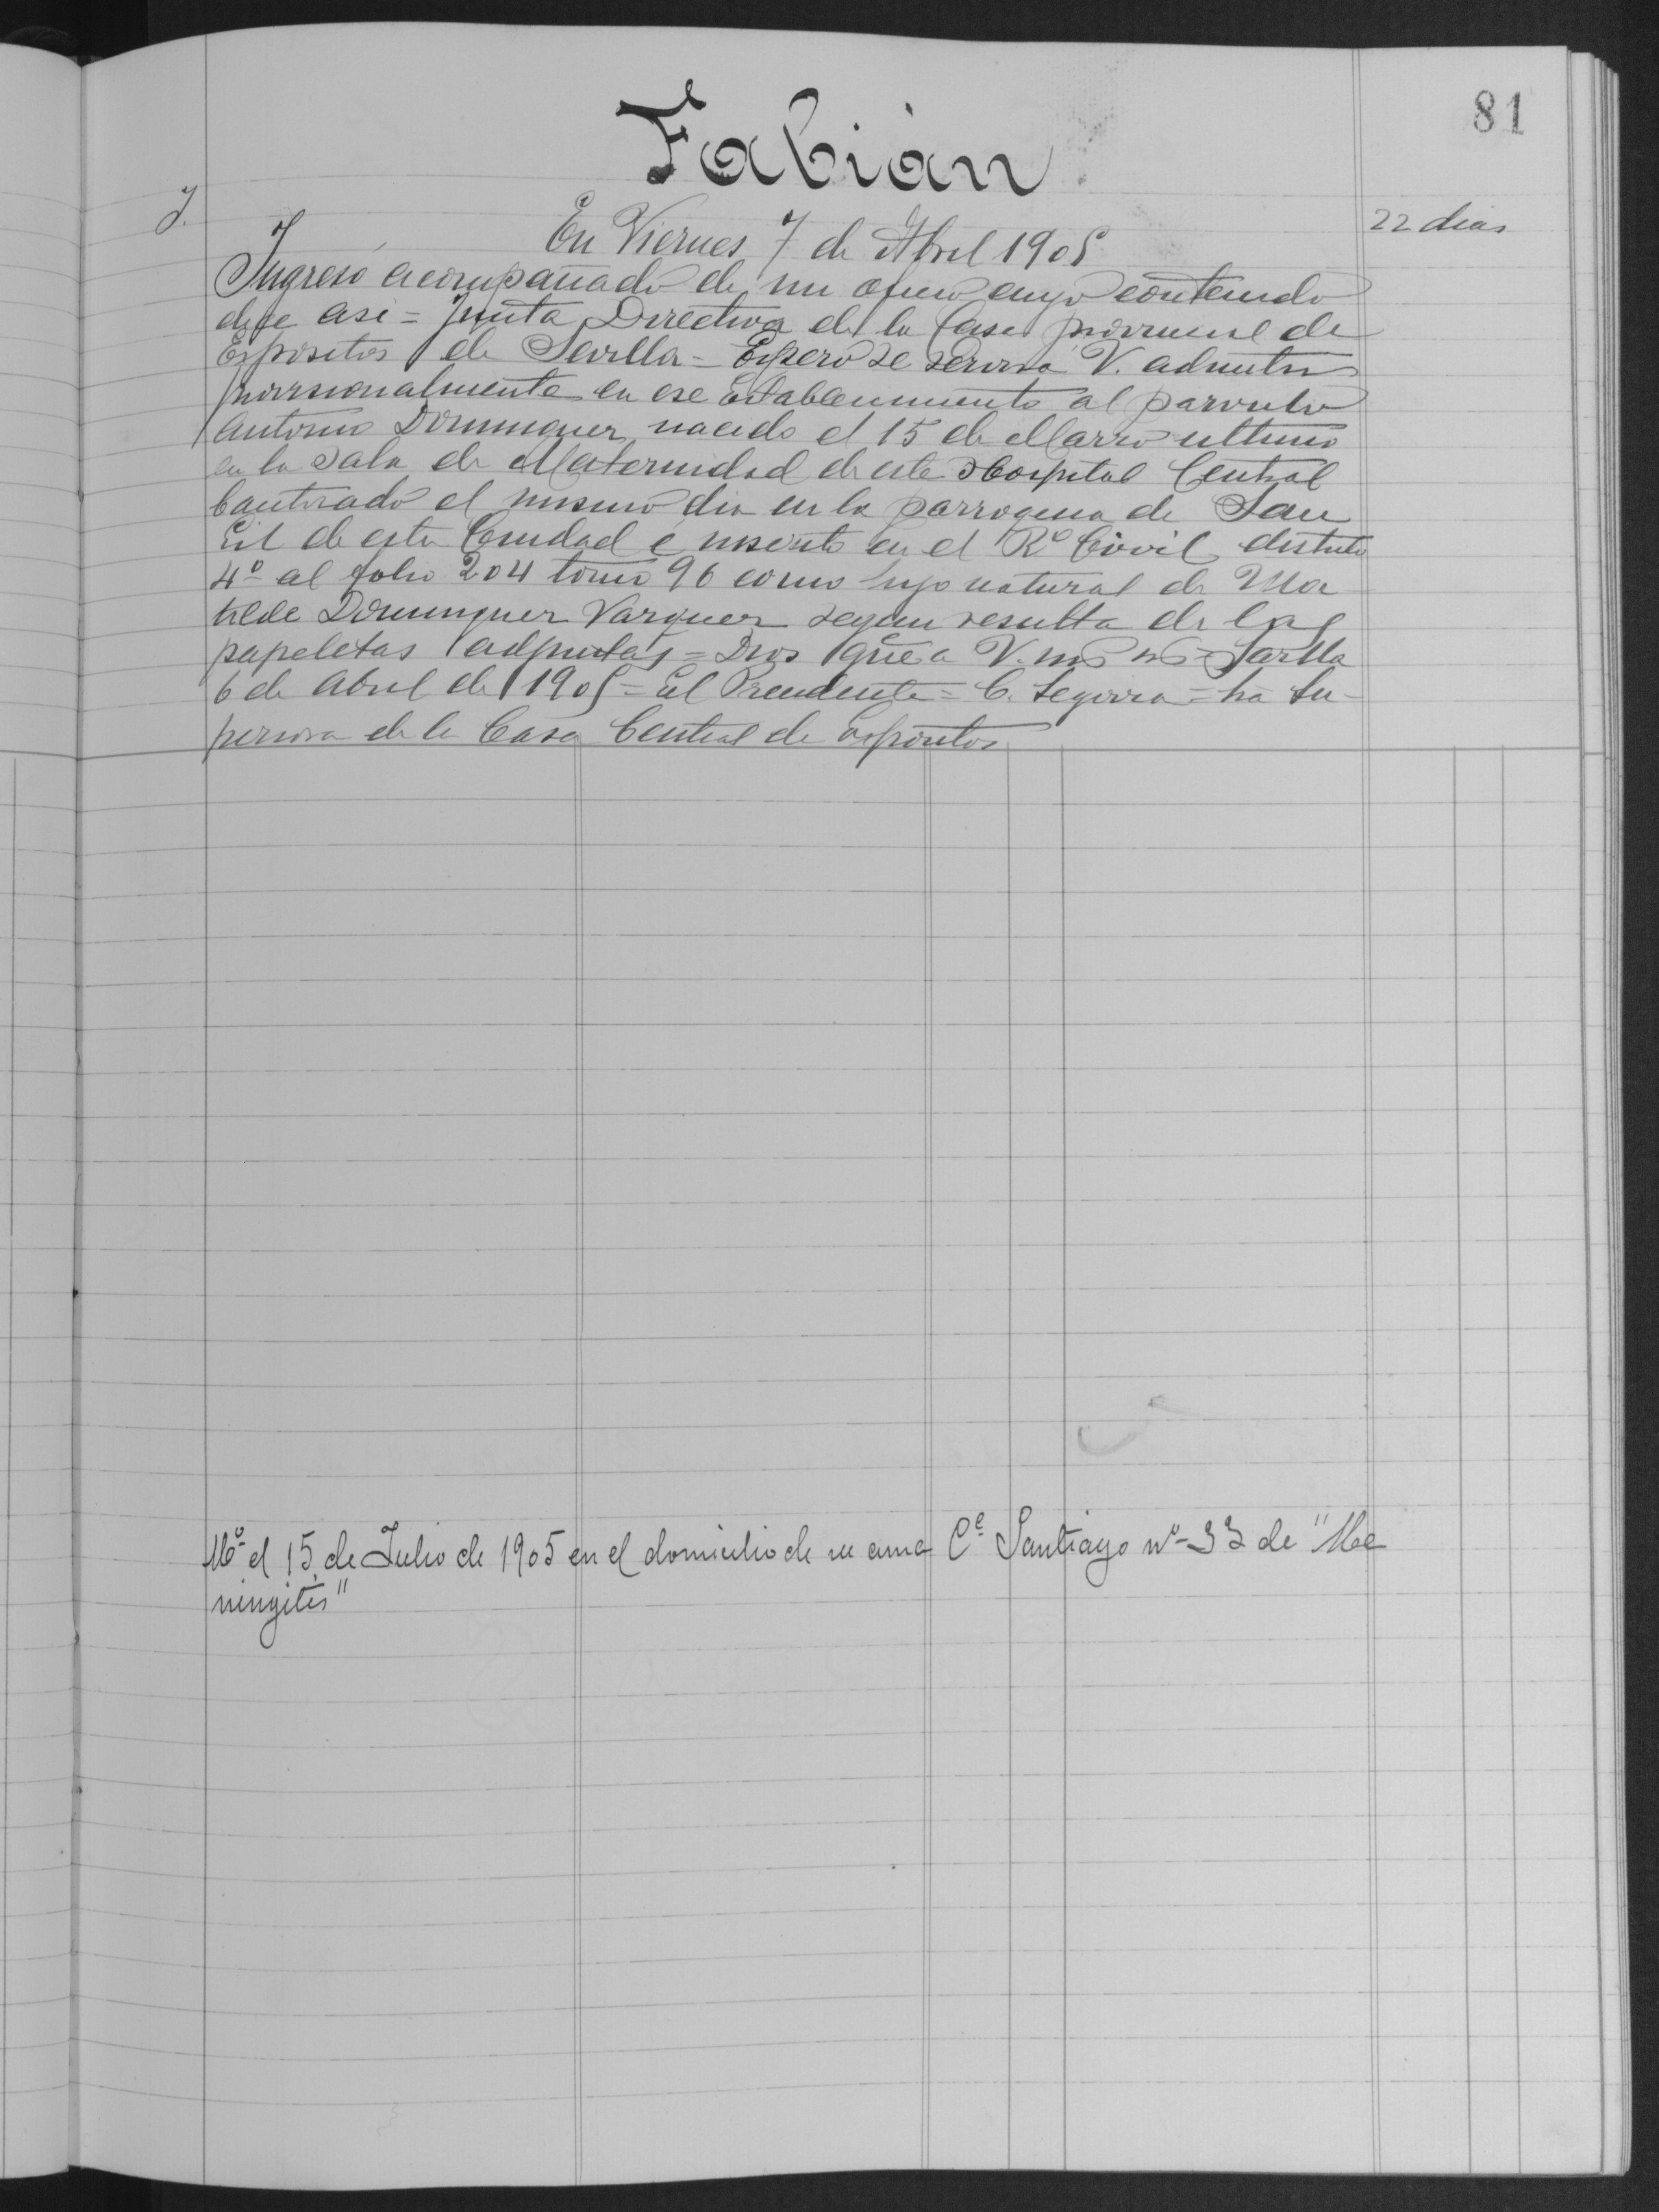 81
Fabián
J.
En Viernes 7 de Abril 1905
22 dias
Ingresó acompañado de un oficio cuyo contenido
dice asi = Junta Directiva de la Casa provincial de
Expositos de Sevilla = Espero se servirá V. admitir
provisionalmente en ese Establecimiento al parvulo
Antonio Dominguez nacido el 15 de Marzo ultimo
en la Sala de Maternidad de este Hospital Central
bautizado el mismo dia en la parroquia de San
Gil de esta Ciudad é inscrito en el Rº Civil distrito
4º al folio 204 tomo 96 como hijo natural de Ma
tilde Dominguez Vazquez segun resulta de las
papeletas adjuntas = Dios gũe a V. ms as = Sevilla
6 de Abril de 1905 = El Presidente = C. Segovia = Sra Su-
periora de la Casa Central de Expositos
Mº el 15 de Julio de 1905 en el domicilio de su ama Cᵉ Santiago nº 33 de "Me
ningitis"